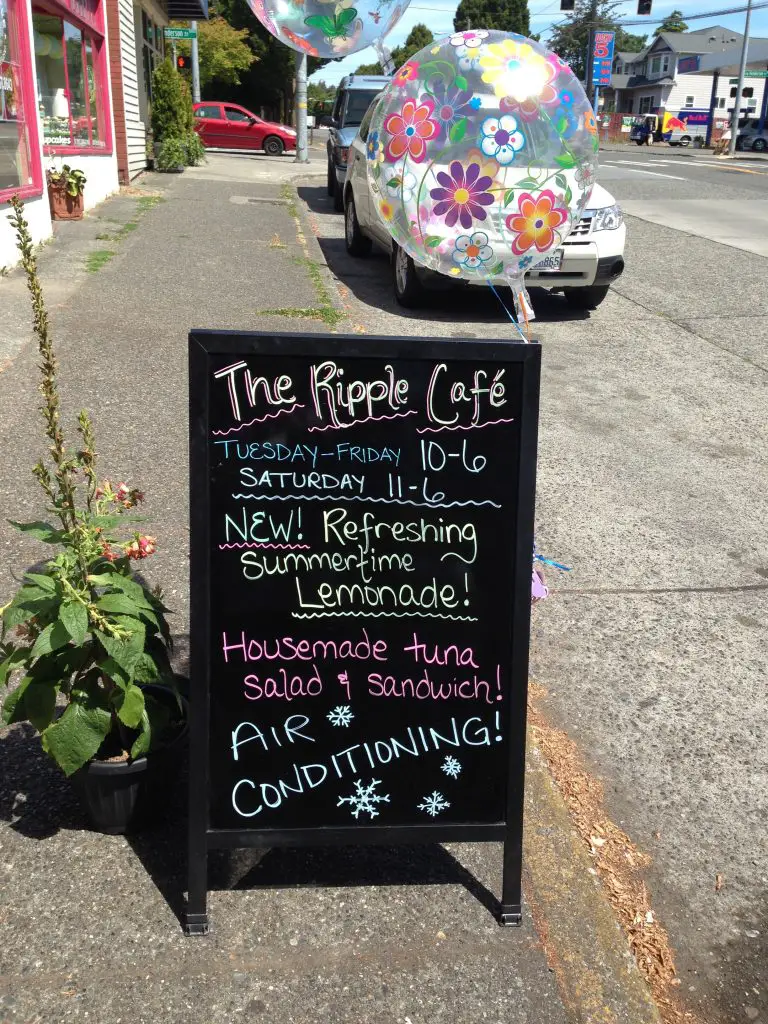 The Ripple Café
TUESDAY-FRIDAY 10-6
SATURDAY 11-6
NEW! Refreshing
Summertime
Lemonade!
Housemade tuna
salad & sandwich!
AIR
CONDITIONING!
cupcakes
5
Red Bull